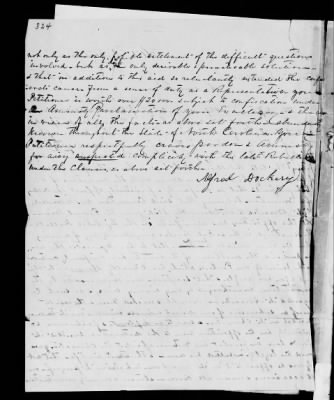 324
not only as the only peaceable settlement of the difficult questions
involved, but as the only desirable & practicable solution
& that in addition to the aid so reluctantly extended the Conf
ederate cause from a sense of duty as a Representative your
Petitioner is worth over $20000 subject to confiscation under
Amnesty Proclamation of your Excellency and there
in view of all the facts as above set forth
known throughout the State of North Carolina. Your
Petitioner respectfully craves pardon & Amnesty
for any supposed complicity with the late Rebellion
under the Clauses, as above set forth
Alfred Dockery